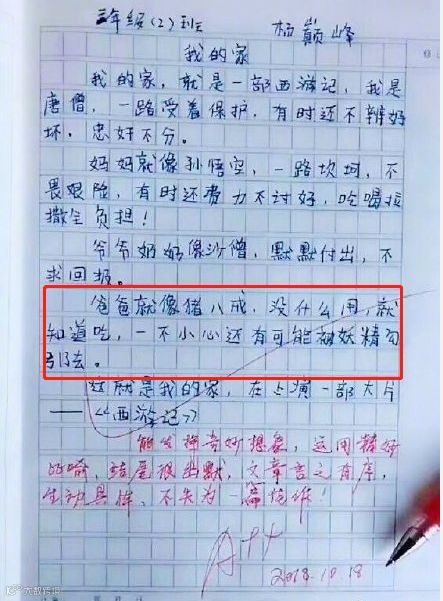 三年级（2）班 杨巅峰
我的家
我的家，就是一部西游记，我是
唐僧，一路受着保护，有时还不辨好
坏，忠奸不分。
妈妈就像孙悟空，一路坎坷，不
畏艰险，有时还费力不讨好，吃喝拉
撒全负担！
爷爷奶奶像沙僧，默默付出，不
求回报。
爸爸就像猪八戒，没什么用，就
知道吃，一不小心还有可能被妖精勾
引去。
这就是我的家，在上演一部大片
——《西游记》
能发挥奇妙想象，运用精妙
的喻，结尾很幽默，文章言之有序，
生动具体，不失为一篇佳作！
A++
2018.10.18